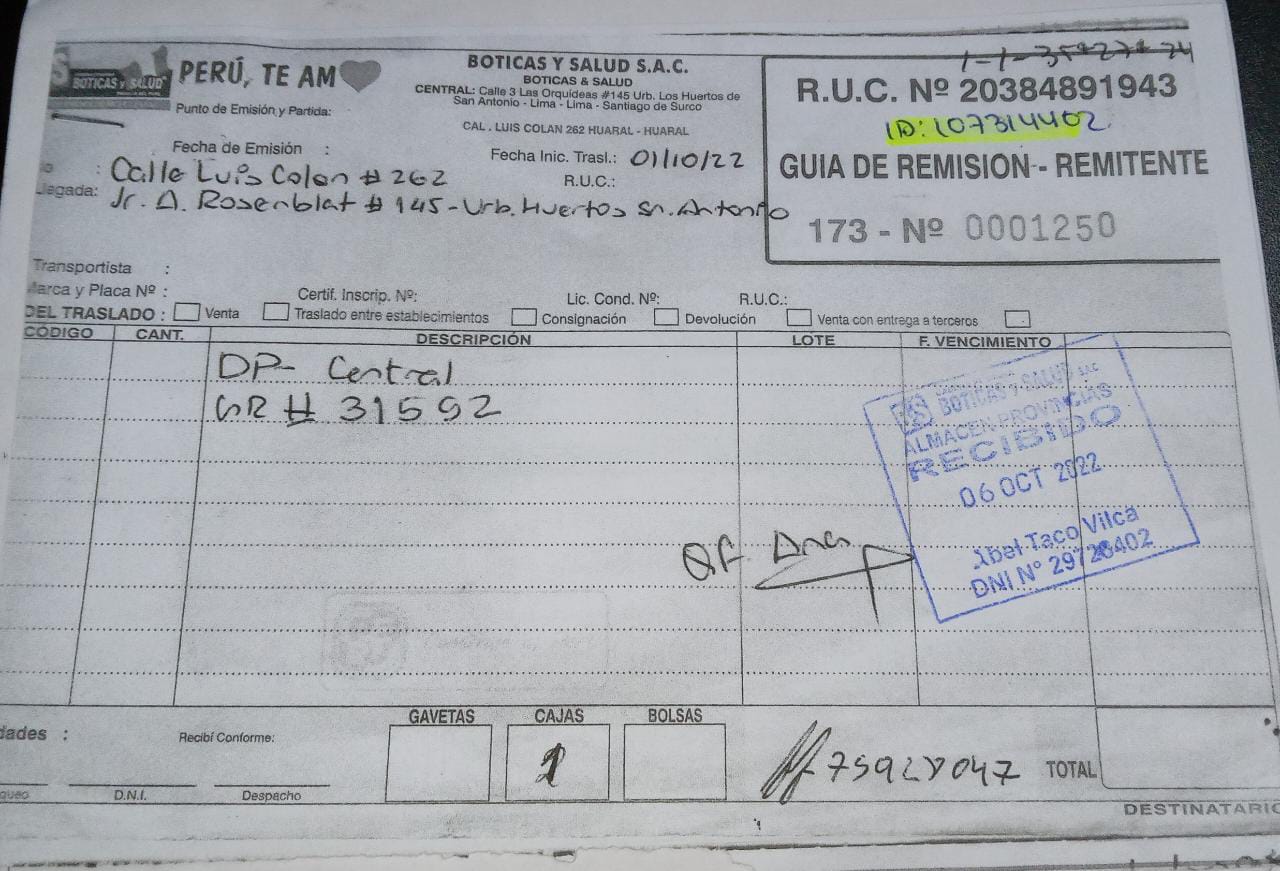 BOTICAS Y SALUD
PERÚ, TE AM
BOTICAS Y SALUD S.A.C.
BOTICAS & SALUD
CENTRAL: Calle 3 Las Orquideas #145 Urb. Los Huertos de
San Antonio - Lima - Lima - Santiago de Surco
CAL . LUIS COLAN 262 HUARAL - HUARAL
Punto de Emisión y Partida:
Fecha de Emisión :
Fecha Inic. Trasl.: 01/10/22
R.U.C.:
: Calle Luis Colan # 262
llegada: Jr. A. Rosenblat # 145 - Urb. Huertos Sn. Antonio
R.U.C. Nº 20384891943
ID: 107314402
GUIA DE REMISION - REMITENTE
173 - Nº 0001250
Transportista :
Marca y Placa Nº :
Certif. Inscrip. Nº:
Lic. Cond. Nº:
R.U.C.:
DEL TRASLADO : Venta Traslado entre establecimientos Consignación Devolución Venta con entrega a terceros
CÓDIGO CANT. DESCRIPCIÓN LOTE F. VENCIMIENTO
DP- Central
GR # 31592
BOTICAS Y SALUD SAC
ALMACEN PROVINCIAS
RECIBIDO
06 OCT 2022
Abel Taco Vilca
DNI N° 29726402
Q.F. Ana
dades :
Recibí Conforme:
GAVETAS CAJAS BOLSAS
1
75928047
TOTAL
D.N.I. Despacho
DESTINATARIO